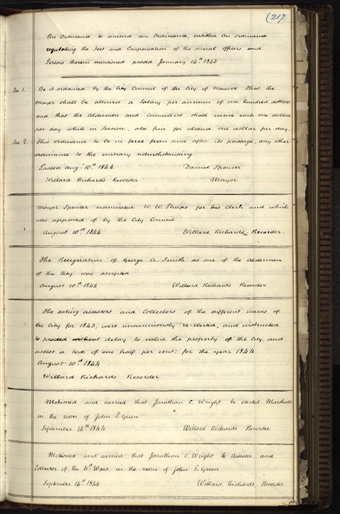 (217
An Ordinance to amend an Ordinance, entitled An ordinance
regulating the fees and Compensation of the several officers and
Persons therein mentioned passed January 14th 1843
Sec 1. Be it ordained by the City Council of the City of Nauvoo That the
Mayor shall be allowed a Salary per annum of one hundred dollars
and that the Aldermen and Councillors shall receive each one dollar
per day while in Session, also fine for absence one dollar per day.
Sec 2. This ordinance to be in force from and after its passage, any other
ordinance to the contrary notwithstanding
Passed Aug: 10th 1844 Daniel Spencer
Willard Richards Recorder Mayor
Mayor Spencer nominated W. W. Phelps for his Clerk, and which
was approved of by the City Council
August 10th 1844 Willard Richards, Recorder.
The Resignation of George A. Smith as one of the Aldermen
of the City was accepted
August 10th 1844 Willard Richards Recorder
The acting assessors and Collectors of the different wards of
the City for 1843, were unanimously re-elected, and instructed
to proceed without delay to value the property of the City, and
assess a tax of one half per cent: for the year 1844
August 10th 1844
Willard Richards Recorder
Motioned and carried that Jonathan C. Wright be elected Marshall
in the room of John P. Green
September 14th 1844 Willard Richards Recorder
Motioned and carried that Jonathan C. Wright be Assessor and
Collector of the Ward in the room of John P. Green
September 14th 1844 Willard Richards, Recorder